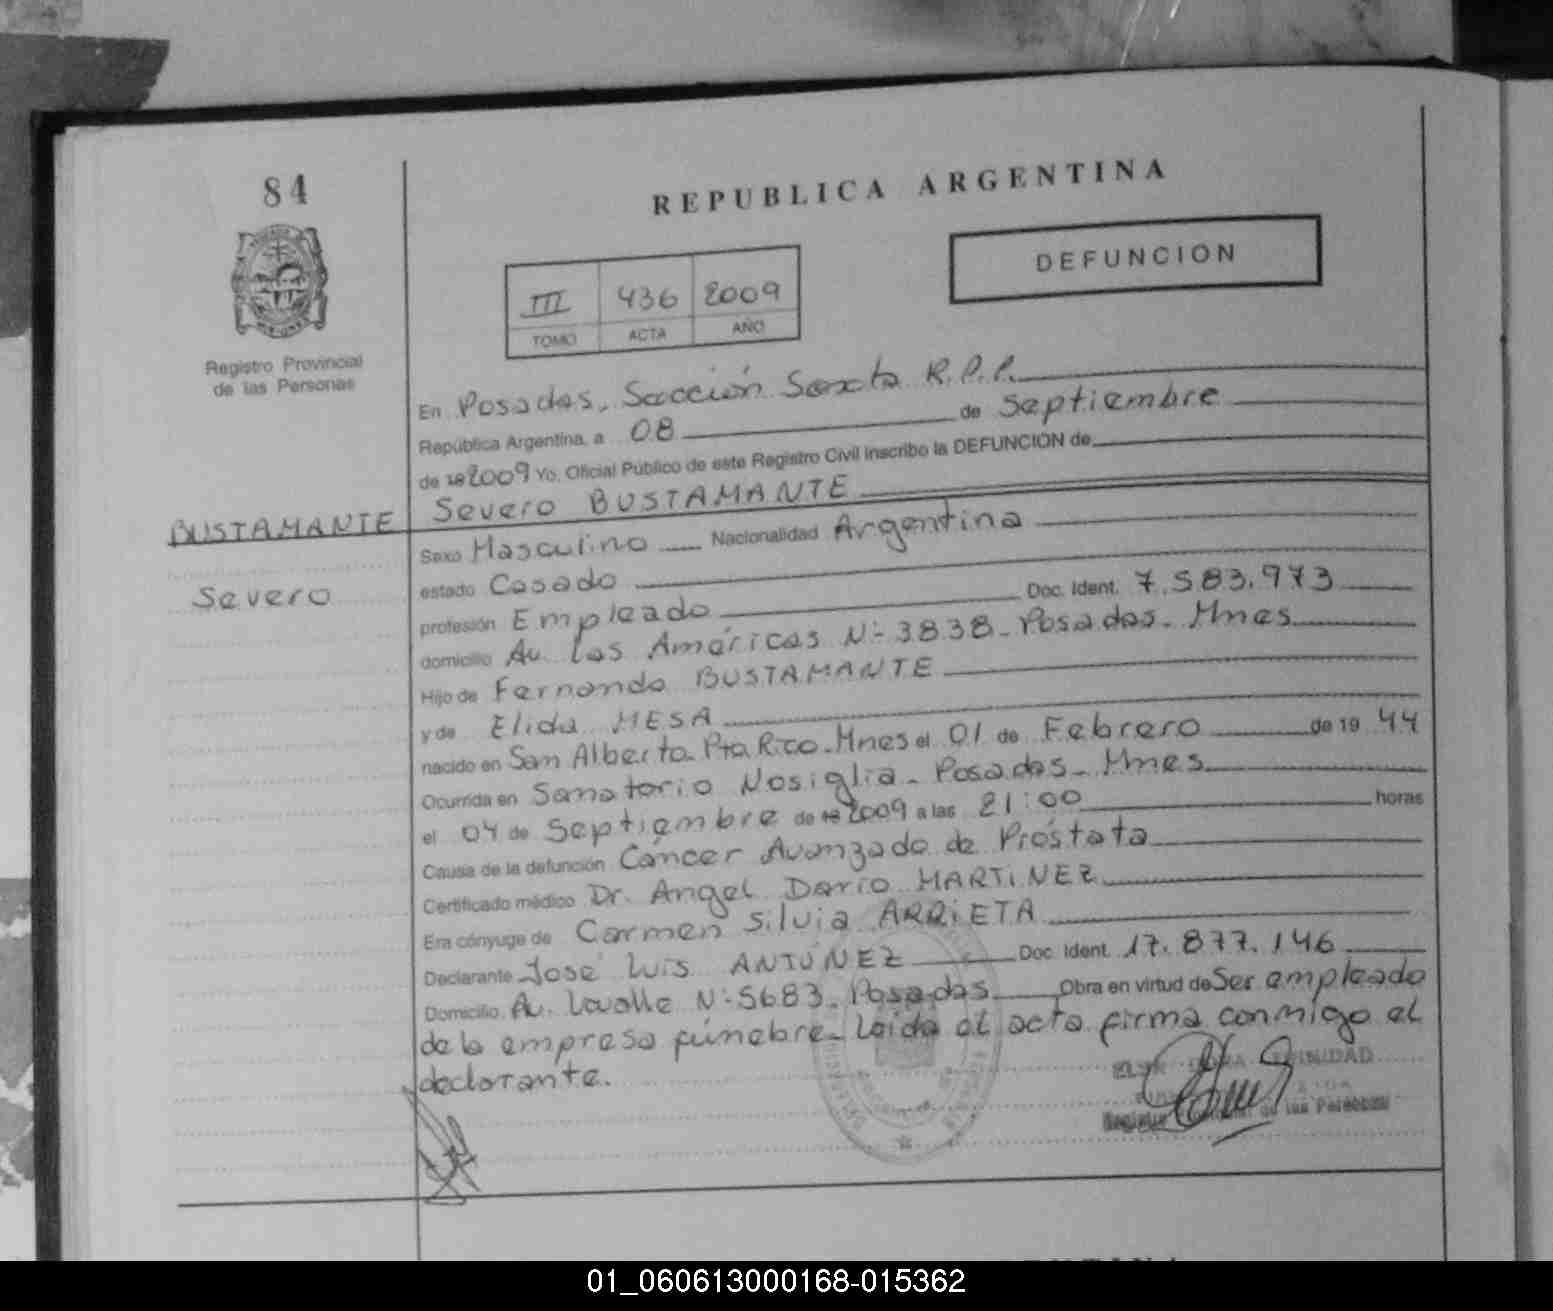 84
REPUBLICA ARGENTINA
DEFUNCION
III 436 2009
TOMO ACTA AÑO
Registro Provincial
de las Personas
En Posadas, Sección Sexta R.P.P.
República Argentina, a 08 de Septiembre
de 2009 Yo, Oficial Público de este Registro Civil inscribo la DEFUNCION de
BUSTAMANTE Severo BUSTAMANTE
Sexo Masculino Nacionalidad Argentina
Severo estado Casado
profesión Empleado Doc. Ident. 7.583.973
domicilio Av. Las Américas N: 3838 - Posadas - Mnes
Hijo de Fernando BUSTAMANTE
y de Elida MESA
nacido en San Alberto. Pto Rico. Mnes el 01 de Febrero de 19 44
Ocurrida en Sanatorio Nosiglia - Posadas - Mnes
el 04 de Septiembre de 2009 a las 21:00 horas
Causa de la defunción Cáncer Avanzado de Próstata
Certificado médico Dr. Angel Dario MARTINEZ
Era cónyuge de Carmen Silvia ARRIETA
Declarante José Luis ANTÚNEZ Doc. Ident. 17.877.146
Domicilio Av. Lavalle N: 5683 - Posadas Obra en virtud de Ser empleado
de la empresa fúnebre - Leida el acta firma conmigo el
declarante.
TRINIDAD
de las Personas
01_060613000168-015362